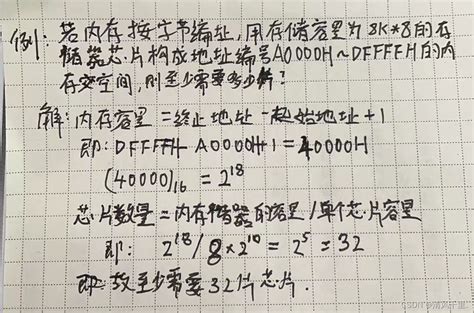 例：若内存按字节编址，用存储容量为8K*8的存
储器芯片构成地址编号A0000H~DFFFFH的内
存空间，则至少需要多少片？
解：内存容量=终止地址-起始地址+1
即：DFFFFH-A0000H+1=40000H
(40000)₁₆=2¹⁸
芯片数量=内存储器的容量/单个芯片容量
即：2¹⁸/8×2¹⁰=2⁵=32
即故至少需要32片芯片.